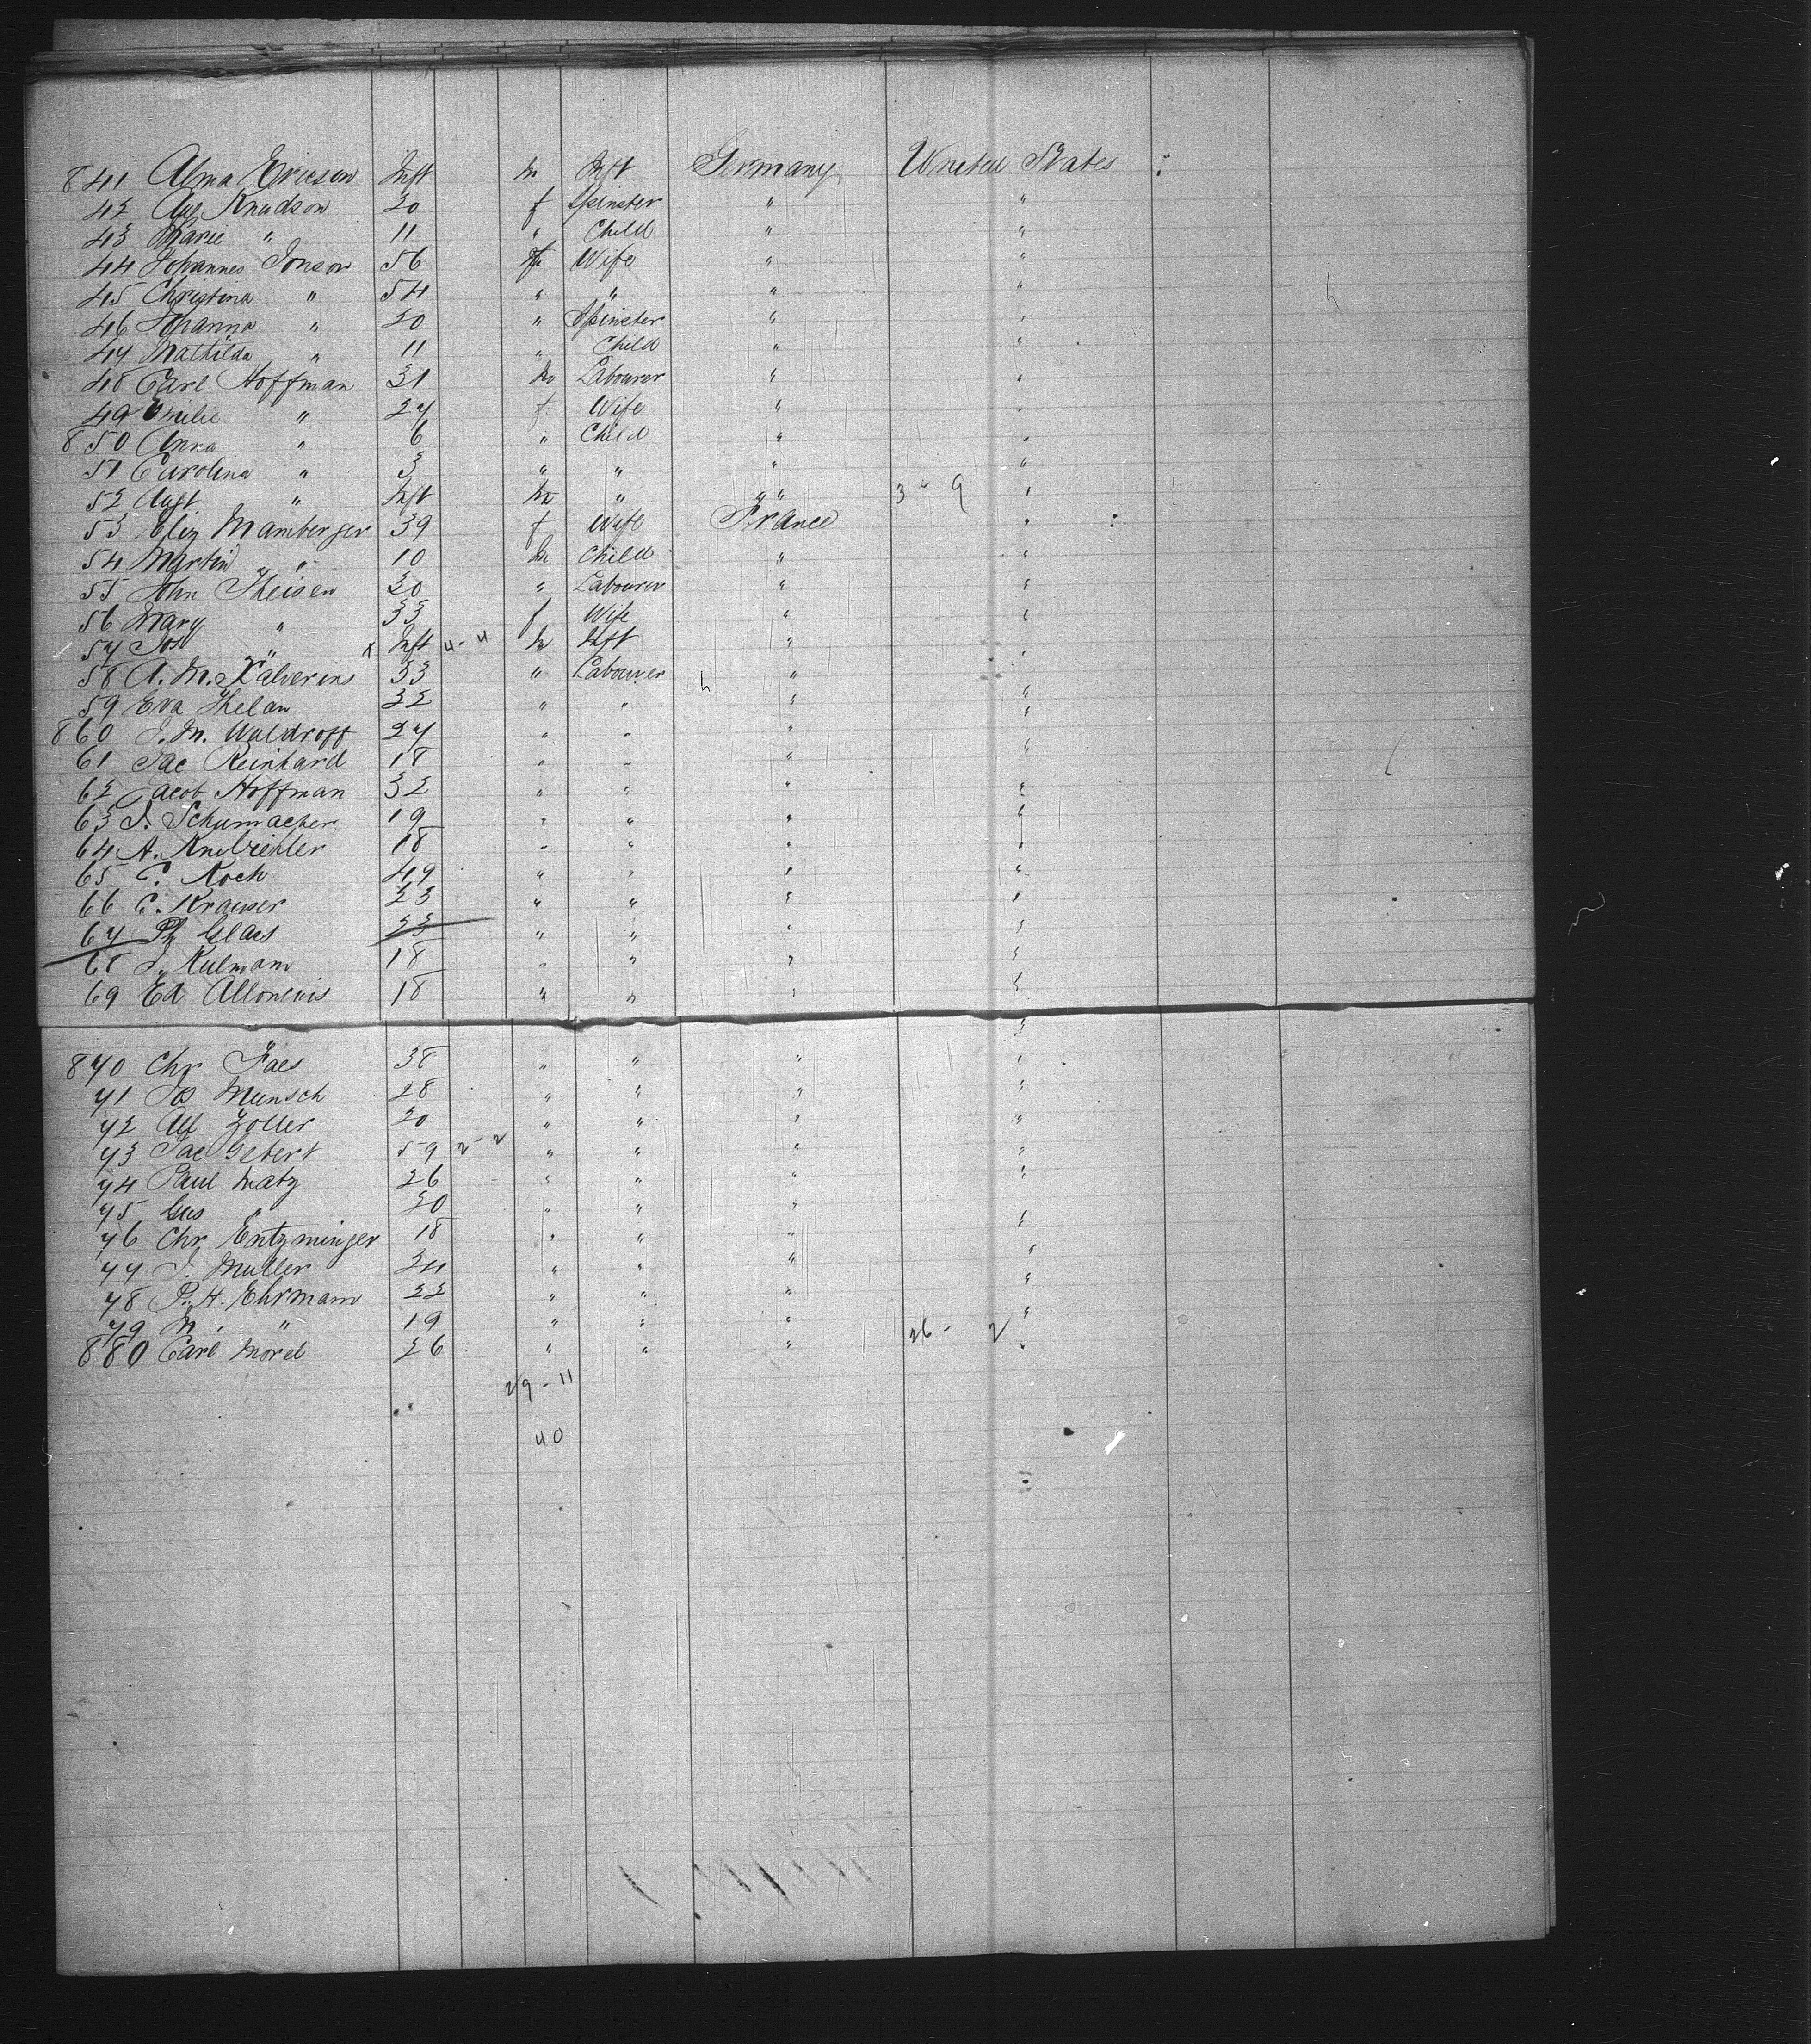 841 Alma Ericson Inft m Inft Germany United States
42 Aug Knudson 20 f Spinster " "
43 Marie " 11 " Child " "
44 Johannes Jonson 56 Wife " "
45 Christina " 54 " " " "
46 Johanna " 20 " Spinster " "
47 Mathilda " 11 " Child " "
48 Carl Hoffman 31 m Labourer " "
49 Emilie " 27 f Wife " "
850 Anna " 6 " Child " "
51 Carolina " 3 " " " "
52 Augt " Inft m " " " 3 - 9 "
53 Eliz Mamberger 39 f Wife France "
54 Martin " 10 m Child " "
55 John Theisen 30 " Labourer " "
56 Mary " 33 f Wife " "
57 Jos " x Inft 4-4 m Inft " "
58 A. M. Kalverins 33 " Labourer " "
59 Eva Thelan 32 " " " "
860 J. M. Waldroff 27 " " " "
61 Jac Reinhard 18 " " " "
62 Jacob Hoffman 32 " " " "
63 J. Schumacher 19 " " " "
64 A. 18 " " " "
65 C. Koch 49 " " " "
66 C. Krauser 23 " " " "
67 Ph Glaes 23 " " " "
68 J. Kulmann 18 " " " "
69 Ed 18 " " " "
870 Chr Faes 38 " " " "
71 Jos Munsch 28 " " " "
72 Alf Zoller 20 " " " "
73 Jac Gebert 59 2-2 " " " "
74 Paul Matz 26 " " " "
75 Gus " 20 " " "
76 Chr Entzminger 18 " " " "
77 J. Muller 24 " " " "
78 P. H. Ehrmann 22 " " " "
79 M. " 19 " " " "
880 Carl Morel 26 " " " 26 - 2 "
29 - 11
40